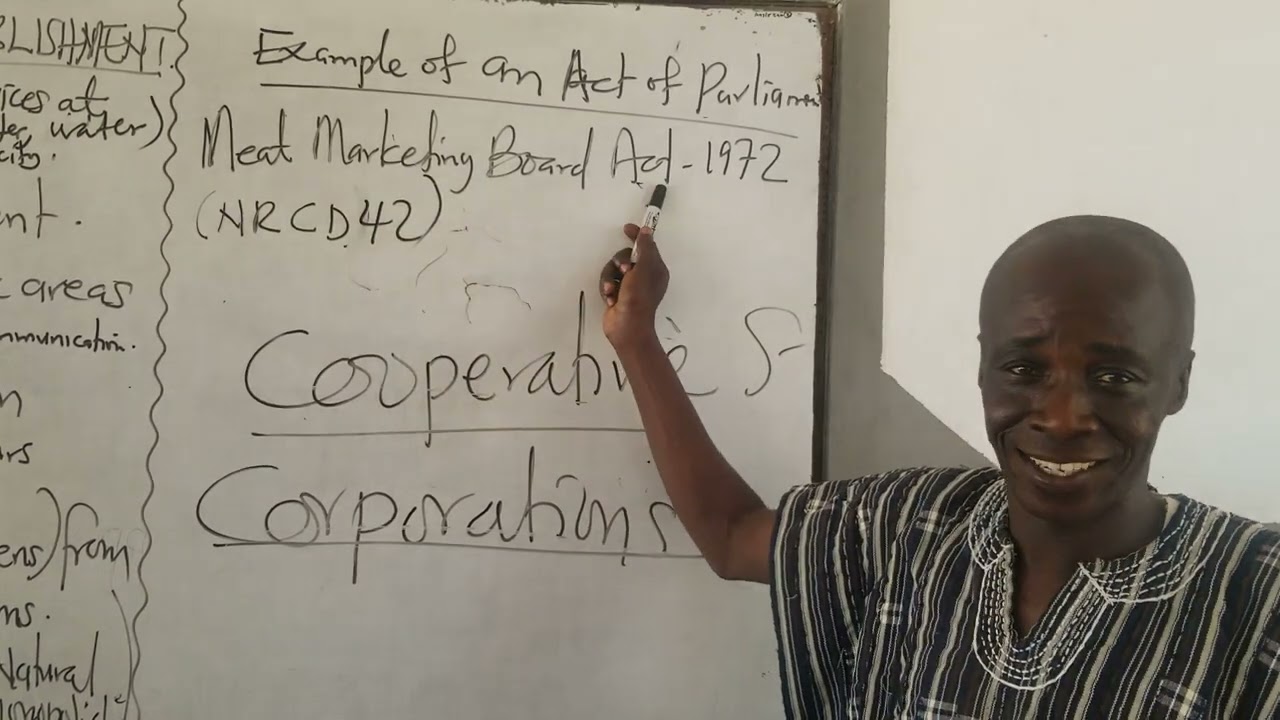 BLISHMENT.
ices at
water)
city.
nt.
areas
mmunication.
n
rs
ens) from
ns.
Natural
Example of an Act of Parliament
Meat Marketing Board Act - 1972
(NRCD.42)
Cooperative S
Corporations